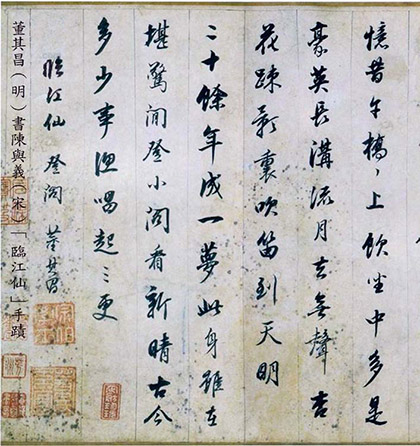 憶昔午橋〻上飲坐中多是
豪英長溝流月去無聲杏
花疎影裏吹笛到天明
二十餘年成一夢此身雖在
堪驚閒登小閣看新晴古今
多少事漁唱起三更
臨江仙 登閣 董其昌
董其昌（明）書陳與義（宋）「臨江仙」手蹟